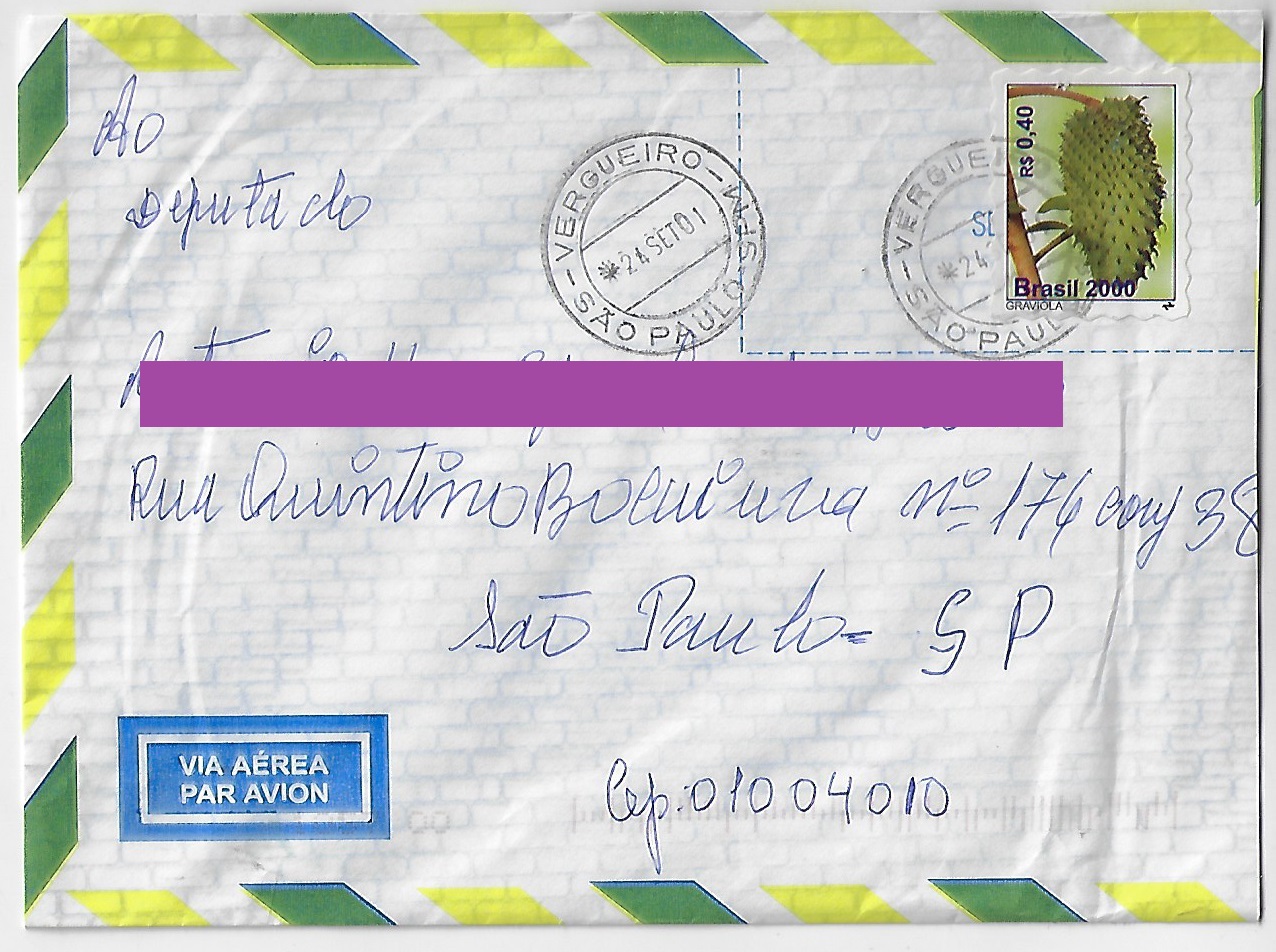 Ao
Deputado
Rua Quintino Bocaiuva nº 176 conj 38
São Paulo - SP
Cep: 01004010
VERGUEIRO - SPM
*24 SET 01
SÃO PAULO
VERGUE
*24
SÃO PAUL
R$ 0,40
Brasil 2000
GRAVIOLA
VIA AÉREA
PAR AVION